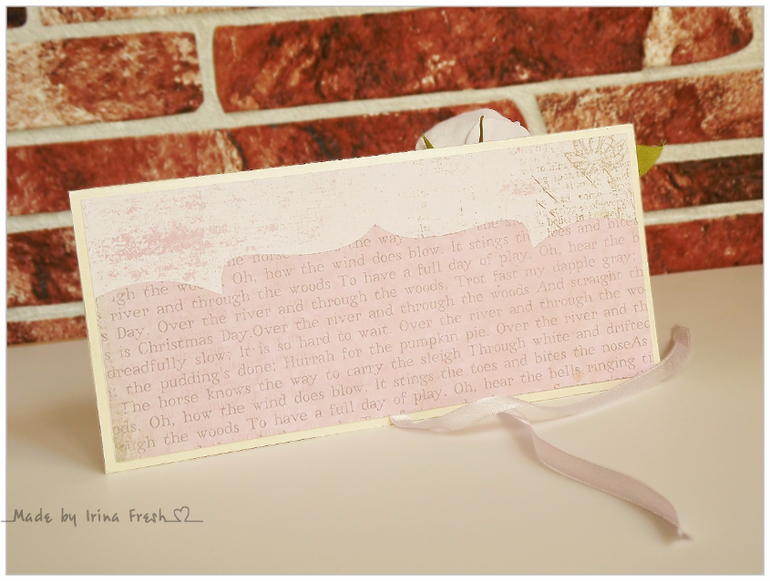 the way
Oh, how the wind does blow. It stings the toes and bites
gh the wo
river and through the woods To have a full day of play. Oh, hear the b
s Day. Over the river and through the woods, Trot fast my dapple gray;
s is Christmas Day.Over the river and through the woods And straight th
dreadfully slow; It is so hard to wait. Over the river and through the wo
the pudding's done; Hurrah for the pumpkin pie. Over the river and th
The horse knows the way to carry the sleigh Through white and drifted
ods. Oh, how the wind does blow. It stings the toes and bites the noseAs
ough the woods To have a full day of play. Oh, hear the bells ringing ti
Made by Irina Fresh